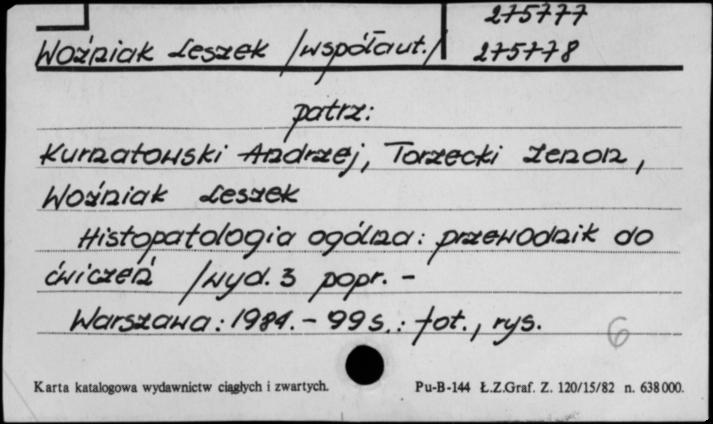 275777
Woźniak Leszek /współaut./ 275778
patrz:
Kurnatowski Andrzej, Torzecki Zenon,
Woźniak Leszek
Histopatologia ogólna: przewodnik do
ćwiczeń /wyd. 3 popr. -
Warszawa: 1984. - 99 s.: fot., rys. 6
Karta katalogowa wydawnictw ciągłych i zwartych. Pu-B-144 Ł.Z.Graf. Z. 120/15/82 n. 638000.